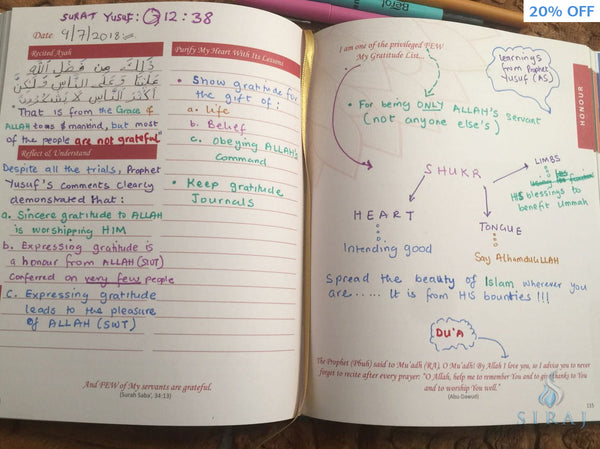 20% OFF
Berol
SURAT YUSUF: 12:38
Date: 4/7/2018
Recited Ayah
ذَٰلِكَ مِن فَضْلِ اللَّهِ
عَلَيْنَا وَعَلَى النَّاسِ وَلَٰكِنَّ
أَكْثَرَ النَّاسِ لَا يَشْكُرُونَ
"That is from the Grace of
ALLAH to us & mankind, but most
of the people are not grateful"
Reflect & Understand
Despite all the trials, Prophet
Yusuf's comments clearly
demonstrated that:
a. Sincere gratitude to ALLAH
is worshipping HIM
b. Expressing gratitude is
a honour from ALLAH (SWT)
conferred on very few people
c. Expressing gratitude
leads to the pleasure
of ALLAH (SWT)
Purify My Heart With Its Lessons
• Show gratitude for
the gift of:
a. Life
b. Belief
c. obeying ALLAH's
command
• Keep gratitude
Journals
And FEW of My servants are grateful.
(Surah Saba', 34:13)
I am one of the privileged FEW
My Gratitude List...
learnings
from Prophet
Yusuf (AS)
HONOUR
• For being ONLY ALLAH's Servant
(not anyone else's)
SHUKR
LIMBS
HIS blessings to
benefit Ummah
HEART
Intending good
TONGUE
Say Alhamdulillah
Spread the beauty of Islam wherever you
are ..... It is from HIS bounties !!!
DU'A
The Prophet (Pbuh) said to Mu'adh (RA), O Mu'adh! By Allah I love you, so I advise you to never
forget to recite after every prayer: "O Allah, help me to remember You and to give thanks to You
and to worship You well."
(Abu Dawud)
135
SIRAJ